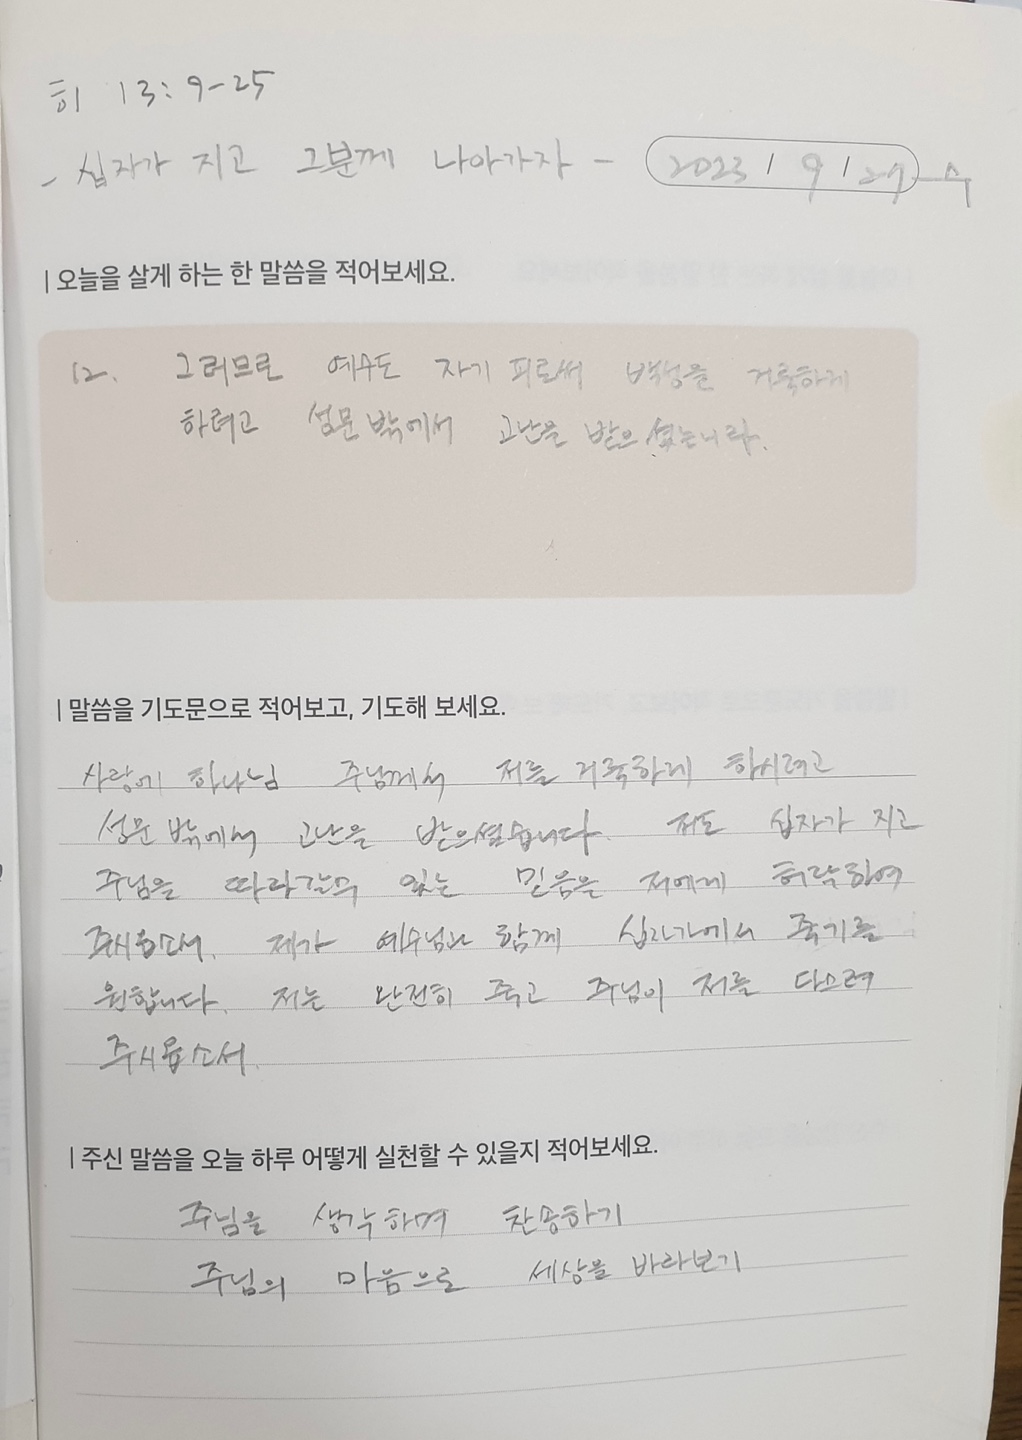 히 13:9-25
- 십자가 지고 그분께 나아가자 - 2023 / 9 / 27 수
| 오늘을 살게 하는 한 말씀을 적어보세요.
12. 그러므로 예수도 자기 피로써 백성을 거룩하게
하려고 성문 밖에서 고난을 받으셨느니라.
| 말씀을 기도문으로 적어보고, 기도해 보세요.
사랑에 하나님 주님께서 저를 거룩하게 하시려고
성문 밖에서 고난을 받으셨습니다. 저도 십자가 지고
주님을 따라갈수 있는 믿음을 저에게 허락하여
주시옵소서. 제가 예수님과 함께 십자가에서 죽기를
원합니다. 저는 완전히 죽고 주님이 저를 다스려
주시옵소서.
| 주신 말씀을 오늘 하루 어떻게 실천할 수 있을지 적어보세요.
주님을 생각하며 찬송하기
주님의 마음으로 세상을 바라보기